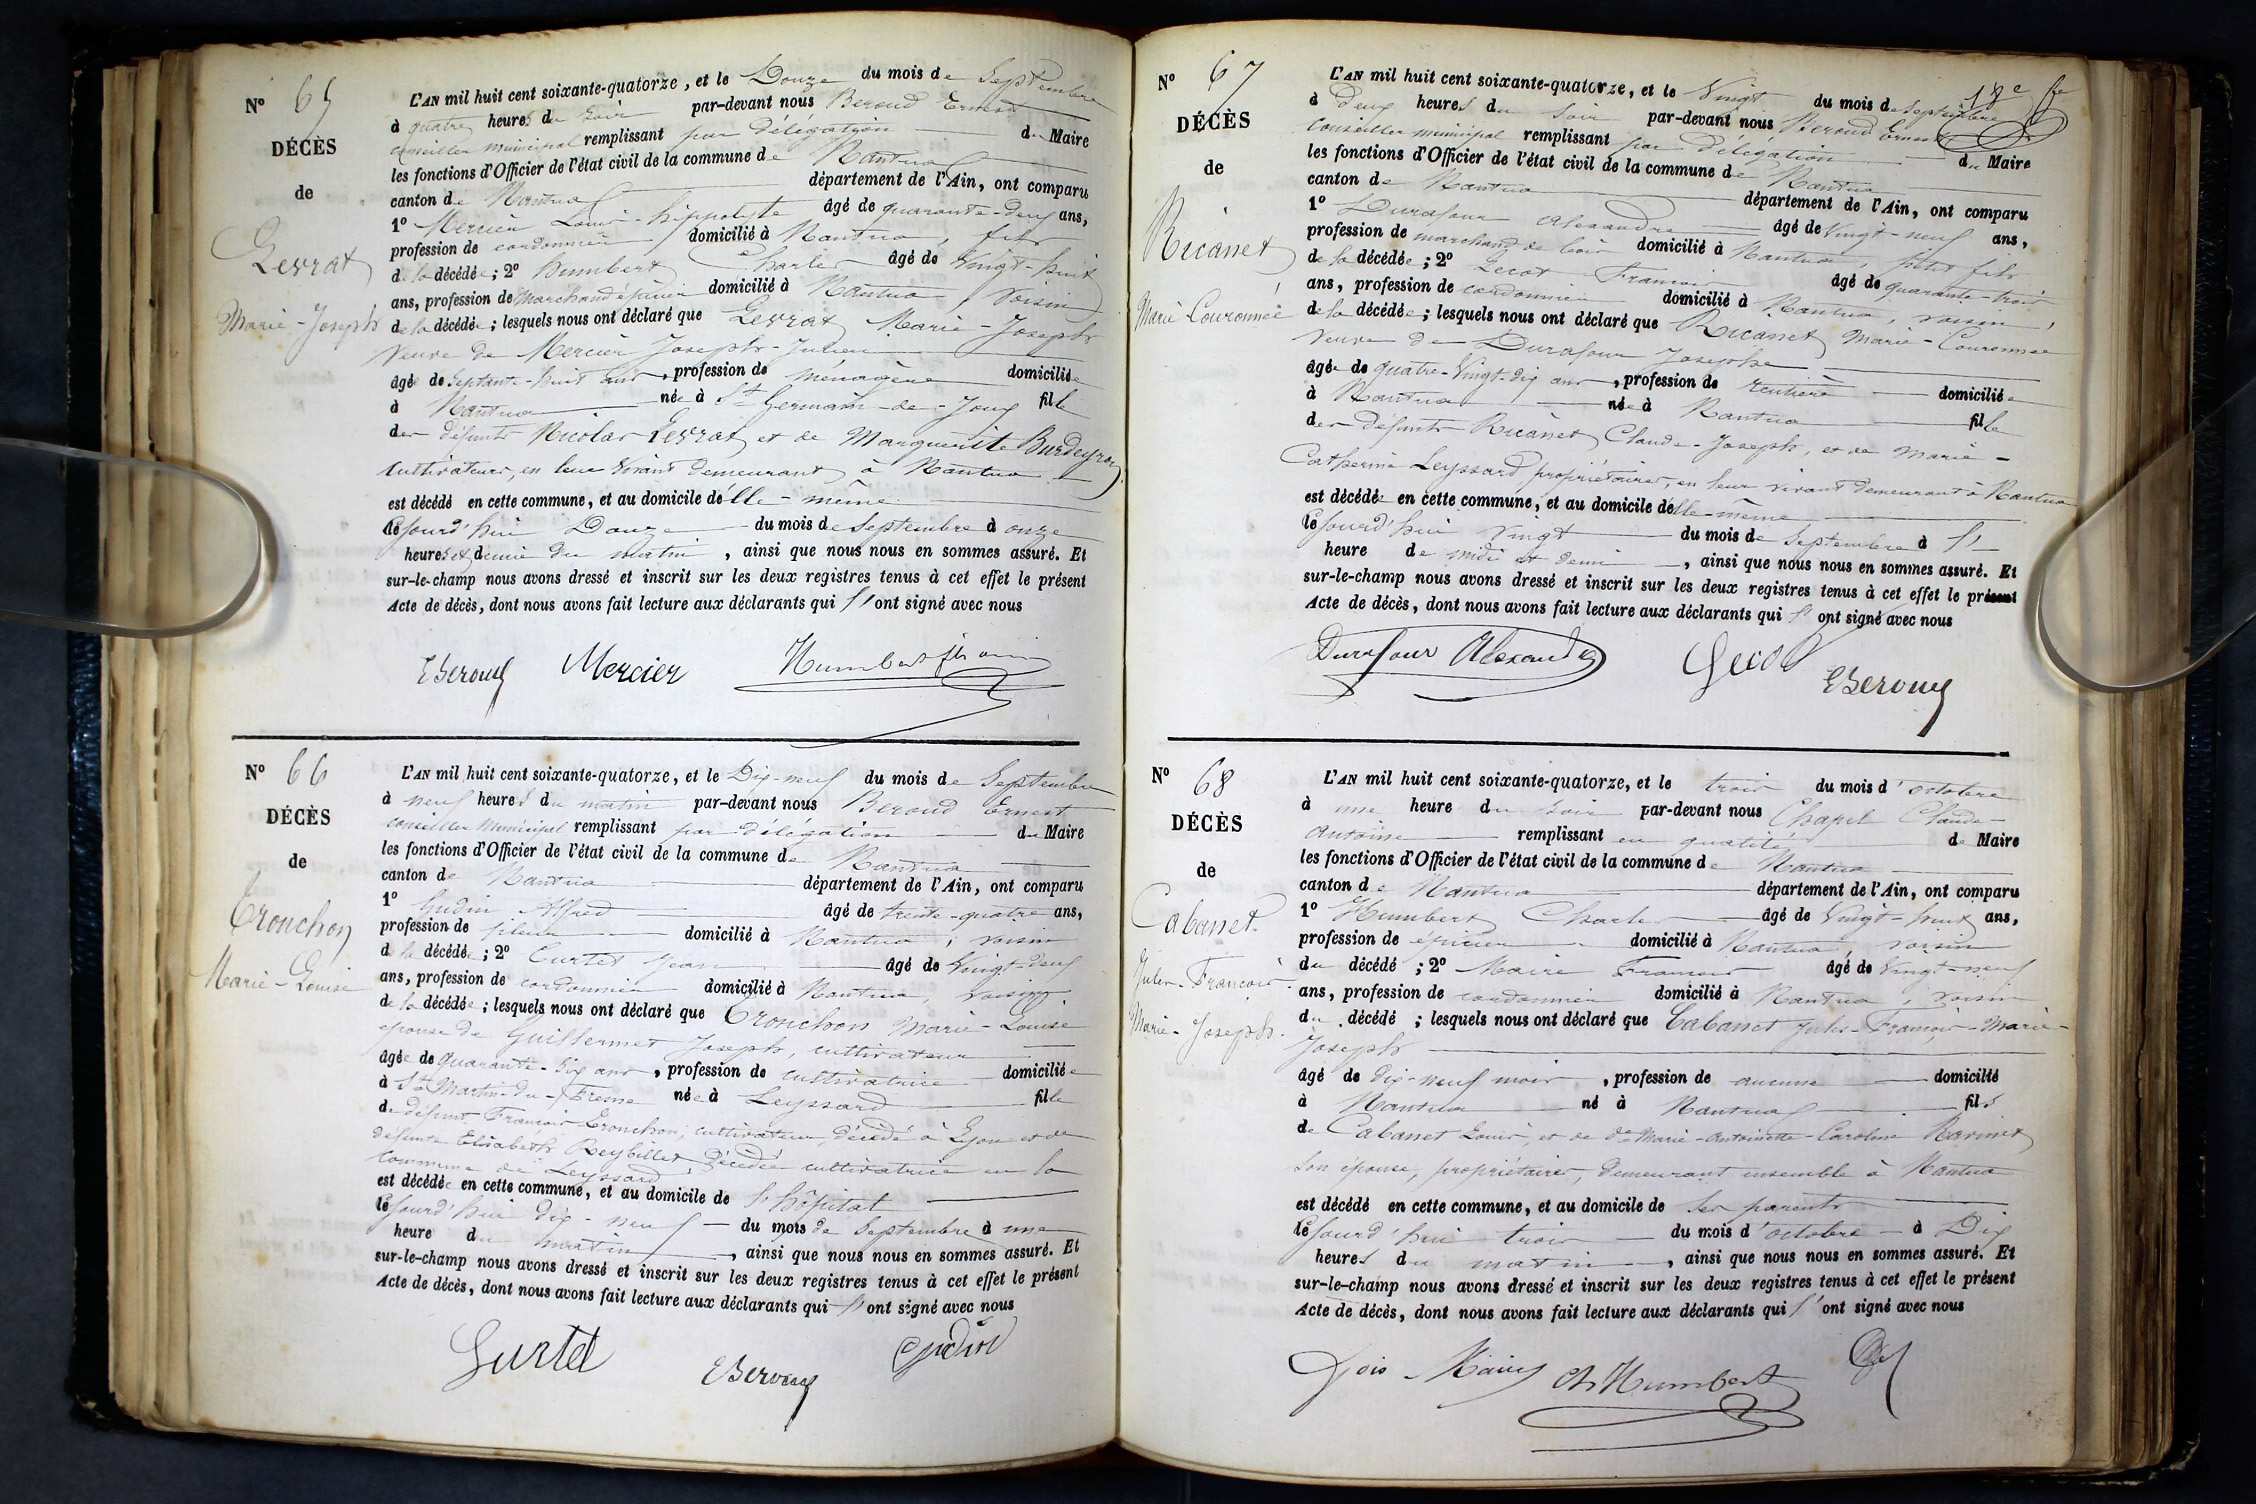 Nº 65
DÉCÈS
de
Levrat
Marie-Joseph
L'AN mil huit cent soixante-quatorze, et le Douze du mois de Septembre
à quatre heures du soir par-devant nous Beroud Ernest
conseiller municipal remplissant par délégation du Maire
les fonctions d'Officier de l'état civil de la commune de Nantua
canton de Nantua département de l'Ain, ont comparu
1º Mercier Louis-hippolyte âgé de quarante-deux ans,
profession de cordonnier domicilié à Nantua, fils
de la décédée; 2º humbert Charles âgé de Vingt-huit
ans, profession de Marchand épicier domicilié à Nantua, Voisin
de la décédée; lesquels nous ont déclaré que Levrat Marie-Joseph
Veuve de Mercier Joseph-Julien
âgée de Septante-huit ans, profession de ménagère domiciliée
à Nantua née à St Germain-de-Joux fille
des défunts Nicolas Levrat et de Marguerite Burdeyron
Cultivateurs, en leur vivant demeurant à Nantua
est décédé en cette commune, et au domicile d'elle-même
cejourd'hui Douze du mois de Septembre à onze
heures et demie du matin, ainsi que nous nous en sommes assuré. Et
sur-le-champ nous avons dressé et inscrit sur les deux registres tenus à cet effet le présent
Acte de décès, dont nous avons fait lecture aux déclarants qui l'ont signé avec nous
EBeroud Mercier Humbert fils ainé
Nº 66
DÉCÈS
de
Tronchon
Marie-Louise
L'AN mil huit cent soixante-quatorze, et le Dix-neuf du mois de Septembre
à neuf heures du matin par-devant nous Beroud Ernest
conseiller Municipal remplissant par délégation du Maire
les fonctions d'Officier de l'état civil de la commune de Nantua
canton de Nantua département de l'Ain, ont comparu
1º Gudin Alfred âgé de trente-quatre ans,
profession de domicilié à Nantua, voisin
de la décédée; 2º Curtet Jean âgé de Vingt-deux
ans, profession de cordonnier domicilié à Nantua, voisin
de la décédée; lesquels nous ont déclaré que Tronchon Marie-Louise
épouse de Guillermet Joseph, cultivateur
âgée de quarante-six ans, profession de cultivatrice domiciliée
à St Martin-du-Fresne née à Leyssard fille
de défunt François Tronchon, cultivateur, décédé à Lyon et de
défunte Elisabeth Reybillet, décédée cultivatrice en la
Commune de Leyssard
est décédée en cette commune, et au domicile de l'hôpital
cejourd'hui dix-neuf du mois de Septembre à une
heure du matin, ainsi que nous nous en sommes assuré. Et
sur-le-champ nous avons dressé et inscrit sur les deux registres tenus à cet effet le présent
Acte de décès, dont nous avons fait lecture aux déclarants qui l'ont signé avec nous
Curtet EBeroud Gudin
18e fe
Nº 67
DÉCÈS
de
Ricanet
Marie Couronnée
L'AN mil huit cent soixante-quatorze, et le Vingt du mois de Septembre
à Deux heures du soir par-devant nous Beroud Ernest
Conseiller municipal remplissant par Délégation du Maire
les fonctions d'Officier de l'état civil de la commune de Nantua
canton de Nantua département de l'Ain, ont comparu
1º Durafour Alexandre âgé de Vingt-neuf ans,
profession de marchand de bois domicilié à Nantua, petit fils
de la décédée; 2º Lecot François âgé de quarante-trois
ans, profession de cordonnier domicilié à Nantua, voisin,
de la décédée; lesquels nous ont déclaré que Ricanet Marie-Couronnée
Veuve de Durafour Josephe
âgée de quatre-Vingt-dix ans, profession de rentière domiciliée
à Nantua née à Nantua fille
des défunts Ricanet Claude-Joseph, et de Marie-
Catherine Leyssard propriétaires, en leur vivant demeurant à Nantua
est décédée en cette commune, et au domicile d'elle-même
cejourd'hui Vingt du mois de Septembre à l'
heure de midi et demi, ainsi que nous nous en sommes assuré. Et
sur-le-champ nous avons dressé et inscrit sur les deux registres tenus à cet effet le présent
Acte de décès, dont nous avons fait lecture aux déclarants qui l'ont signé avec nous
Durafour Alexandre Lecot EBeroud
Nº 68
DÉCÈS
de
Cabanet
Jules-François
Marie-Joseph
L'AN mil huit cent soixante-quatorze, et le trois du mois d'octobre
à une heure du soir par-devant nous Chapel Claude-
Antoine remplissant en qualité de Maire
les fonctions d'Officier de l'état civil de la commune de Nantua
canton de Nantua département de l'Ain, ont comparu
1º Humbert Charles âgé de Vingt-huit ans,
profession de épicier domicilié à Nantua, voisin
du décédé; 2º Maire François âgé de Vingt-neuf
ans, profession de cordonnier domicilié à Nantua, voisin
du décédé; lesquels nous ont déclaré que Cabanet Jules-François-Marie-
Joseph
âgé de dix-neuf mois, profession de aucune domicilié
à Nantua né à Nantua fils
de Cabanet Louis, et de de Marie-Antoinette-Caroline Ravinet
son épouse, propriétaires, demeurant ensemble à Nantua
est décédé en cette commune, et au domicile de ses parents
cejourd'hui trois du mois d'octobre à Dix
heures du matin, ainsi que nous nous en sommes assuré. Et
sur-le-champ nous avons dressé et inscrit sur les deux registres tenus à cet effet le présent
Acte de décès, dont nous avons fait lecture aux déclarants qui l'ont signé avec nous
Fçois Maire Ch Humbert